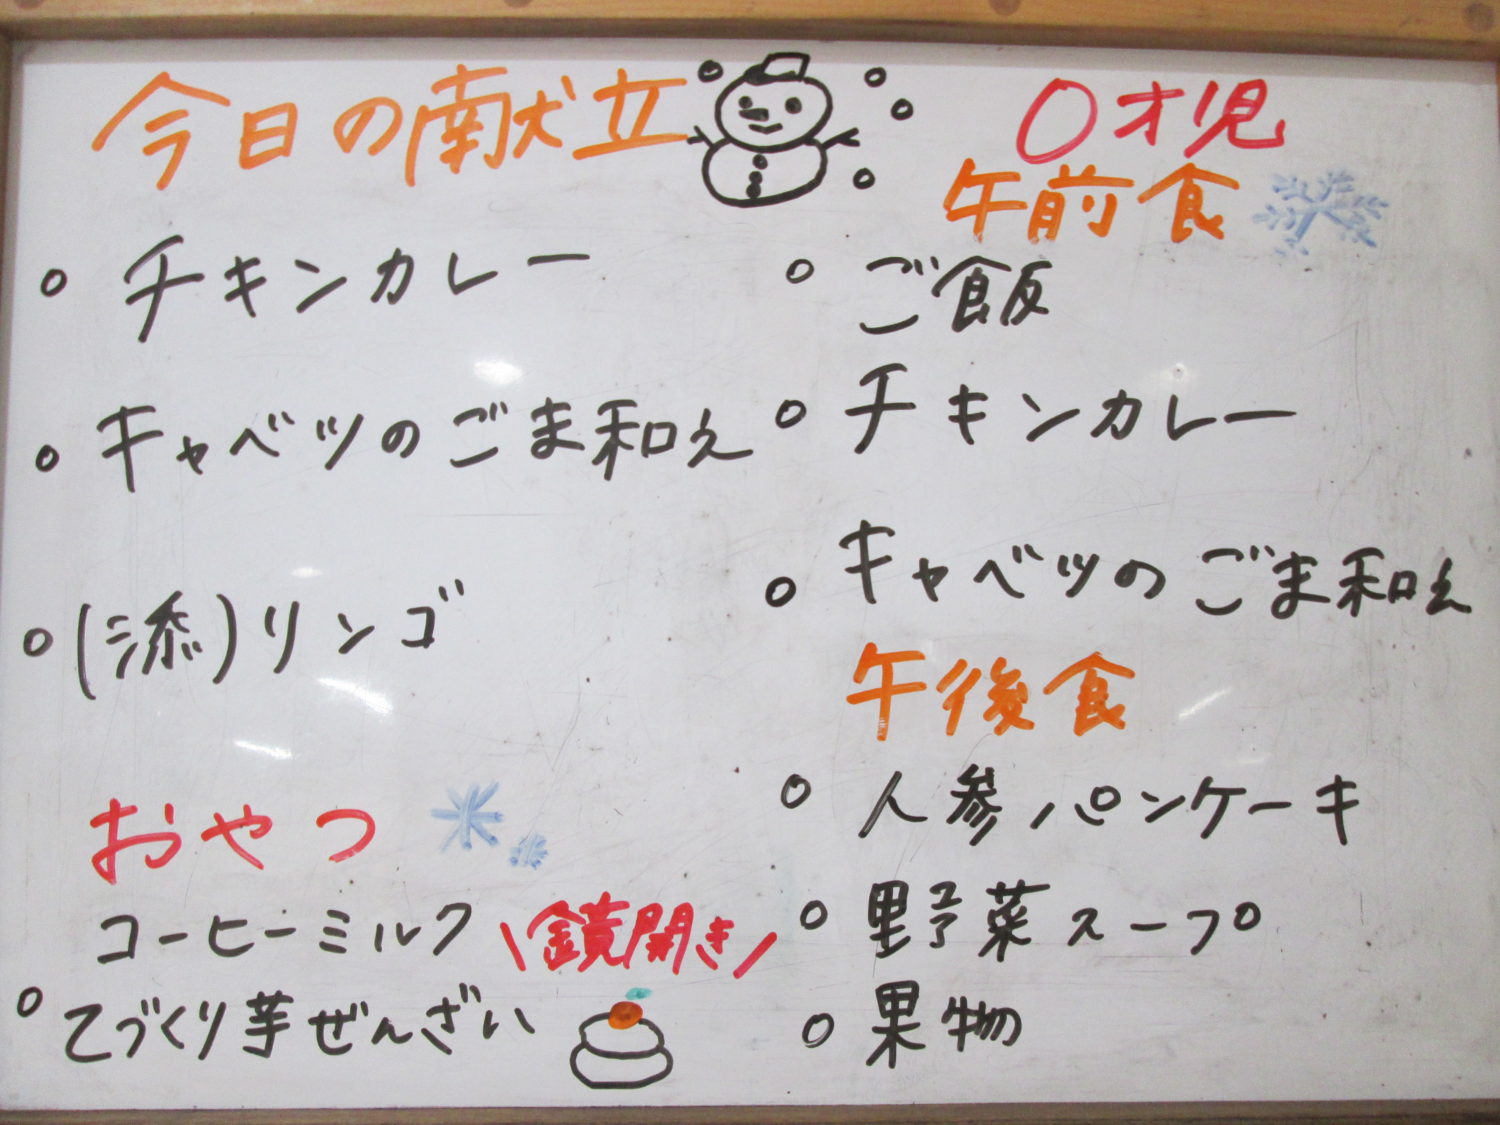 今日の献立
○ チキンカレー
○ キャベツのごま和え
○ (添)リンゴ
おやつ
コーヒーミルク
\鏡開き/
○ てづくり芋ぜんざい
0才児
午前食
○ ご飯
○ チキンカレー
○ キャベツのごま和え
午後食
○ 人参パンケーキ
○ 野菜スープ
○ 果物